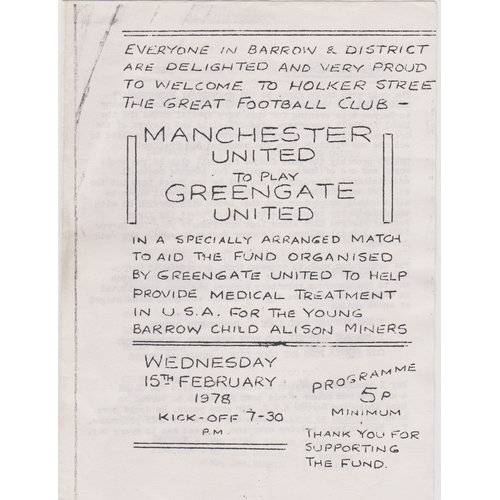 EVERYONE IN BARROW & DISTRICT
ARE DELIGHTED AND VERY PROUD
TO WELCOME TO HOLKER STREE
THE GREAT FOOTBALL CLUB —
MANCHESTER
UNITED
TO PLAY
GREENGATE
UNITED
IN A SPECIALLY ARRANGED MATCH
TO AID THE FUND ORGANISED
BY GREENGATE UNITED TO HELP
PROVIDE MEDICAL TREATMENT
IN U.S.A. FOR THE YOUNG
BARROW CHILD ALISON MINERS
WEDNESDAY
15TH FEBRUARY
1978
KICK-OFF 7-30
P.M.
PROGRAMME
5P
MINIMUM
THANK YOU FOR
SUPPORTING
THE FUND.